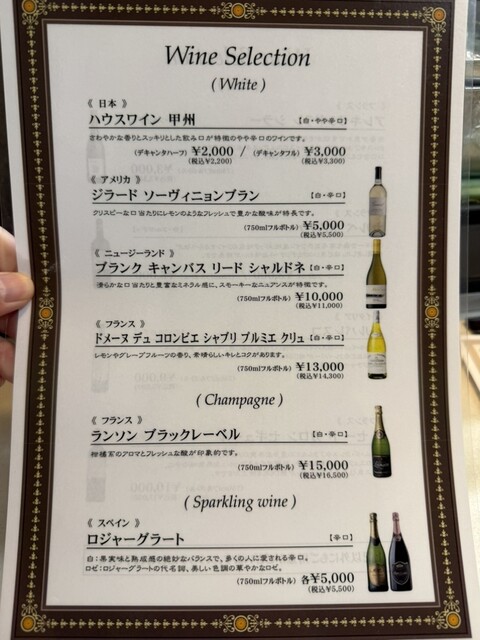 Wine Selection
( White )
《 日本 》
ハウスワイン 甲州 【白・やや辛口】
さわやかな香りとスッキリとした飲み口が特徴のやや辛口のワインです。
(デキャンタハーフ) ¥2,000 / (デキャンタフル) ¥3,000
(税込¥2,200) (税込¥3,300)
《 アメリカ 》
ジラード ソーヴィニョンブラン 【白・辛口】
クリスピーな口当たりにレモンのようなフレッシュで豊かな酸味が特長です。
(750mlフルボトル) ¥5,000
(税込¥5,500)
《 ニュージーランド 》
ブランク キャンバス リード シャルドネ 【白・辛口】
滑らかな口当たりと豊富なミネラル感に、スモーキーなニュアンスが特徴です。
(750mlフルボトル) ¥10,000
(税込¥11,000)
《 フランス 》
ドメーヌ デュ コロンビエ シャブリ プルミエ クリュ 【白・辛口】
レモンやグレープフルーツの香り、素晴らしいキレとコクがあります。
(750mlフルボトル) ¥13,000
(税込¥14,300)
( Champagne )
《 フランス 》
ランソン ブラックレーベル 【白・辛口】
柑橘系のアロマとフレッシュな酸が印象的です。
(750mlフルボトル) ¥15,000
(税込¥16,500)
( Sparkling wine )
《 スペイン 》
ロジャーグラート 【辛口】
白：果実味と熟成感の絶妙なバランスで、多くの人に愛される辛口。
ロゼ：ロジャーグラートの代名詞、美しい色調の華やかなロゼ。
(750mlフルボトル) 各¥5,000
(税込¥5,500)